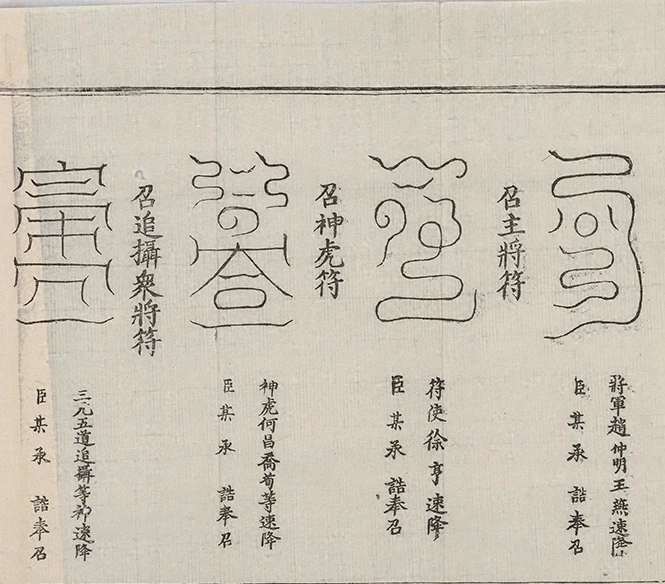 將軍趙仲明王燕速降
臣某承 誥奉召
召主將符
符使徐亨速降
臣某承 誥奉召
召神虎符
神虎何昌喬荀等速降
臣某承 誥奉召
召追攝衆將符
三九五道追攝等速降
臣某承 誥奉召